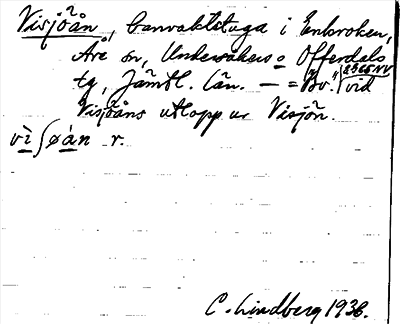 Visjöån, banvaktstuga i Enbroken,
Åre sn, Undersåkers o Offerdals
tg, Jämtl. län. — = "Bv." 2365NV vid
Visjöåns utlopp ur Visjön.
vi ʃøån r.
C. Lindberg 1936.